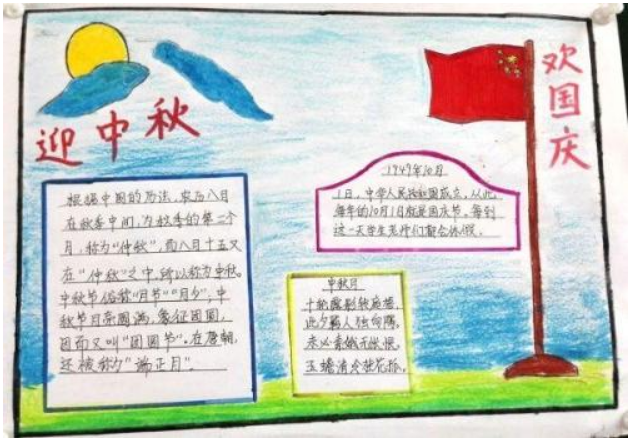 迎中秋
欢国庆
根据中国的历法,农历八月
在秋季中间,为秋季的第二个
月,称为“仲秋”,而八月十五又
在“仲秋”之中,所以称为中秋。
中秋节俗称“月节”“月夕”,中
秋节月亮圆满,象征团圆,
因而又叫“团圆节”。在唐朝,
还被称为“端正月”.
1949年10月
1日,中华人民共和国成立,从此
每年的10月1日就是国庆节,每到
这一天学生老师们都会休假。
中秋月
十轮霜影转庭梧,
此夕羁人独向隅。
未必素娥无怅恨,
玉蟾清冷桂花孤。